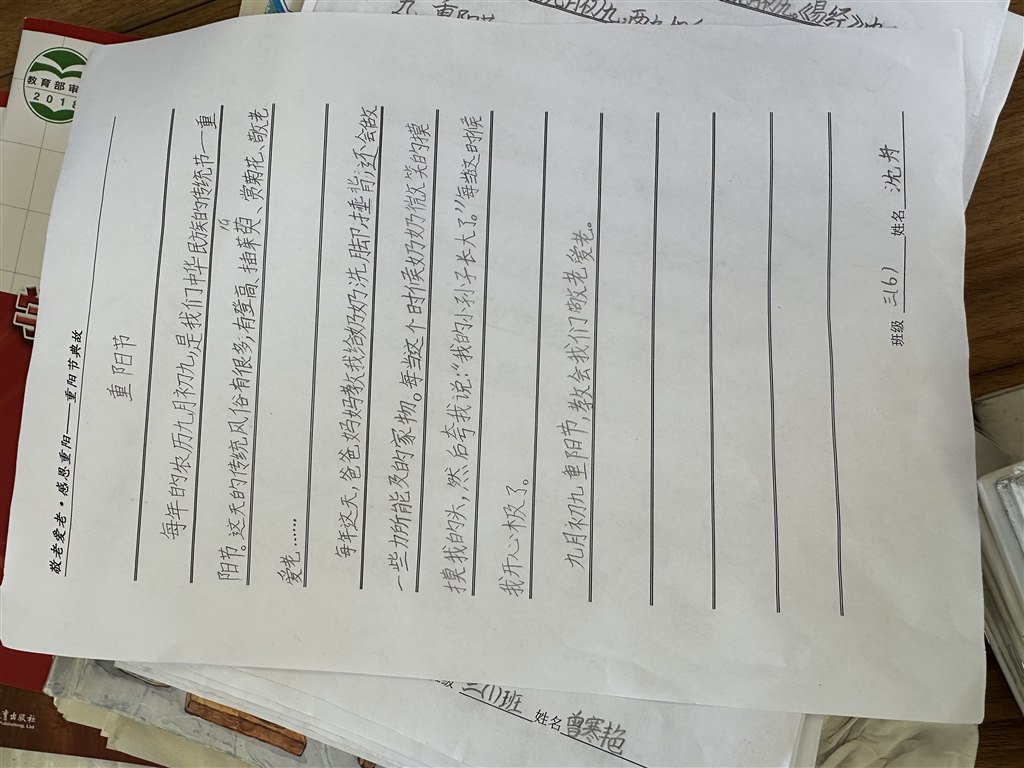 敬老爱老·感恩重阳——重阳节典故
重阳节
每年的农历九月初九，是我们中华民族的传统节一重
阳节。这天的传统风俗有很多，有登高、插茱萸、赏菊花、敬老
爱老……
每年这天，爸爸妈妈教我给奶奶洗脚、捶背，还会做
一些力所能及的家物。每当这个时候奶奶微微笑的摸
摸我的头，然后夸我说：“我的小孙子长大了。”每当这时候
我开心极了。
九月初九重阳节，教会我们敬老爱老。
班级 三(6) 姓名 沈舟
三(1)班 姓名 曾寒艳
教育部审
2018
育出版社
九、重阳节
《易经》